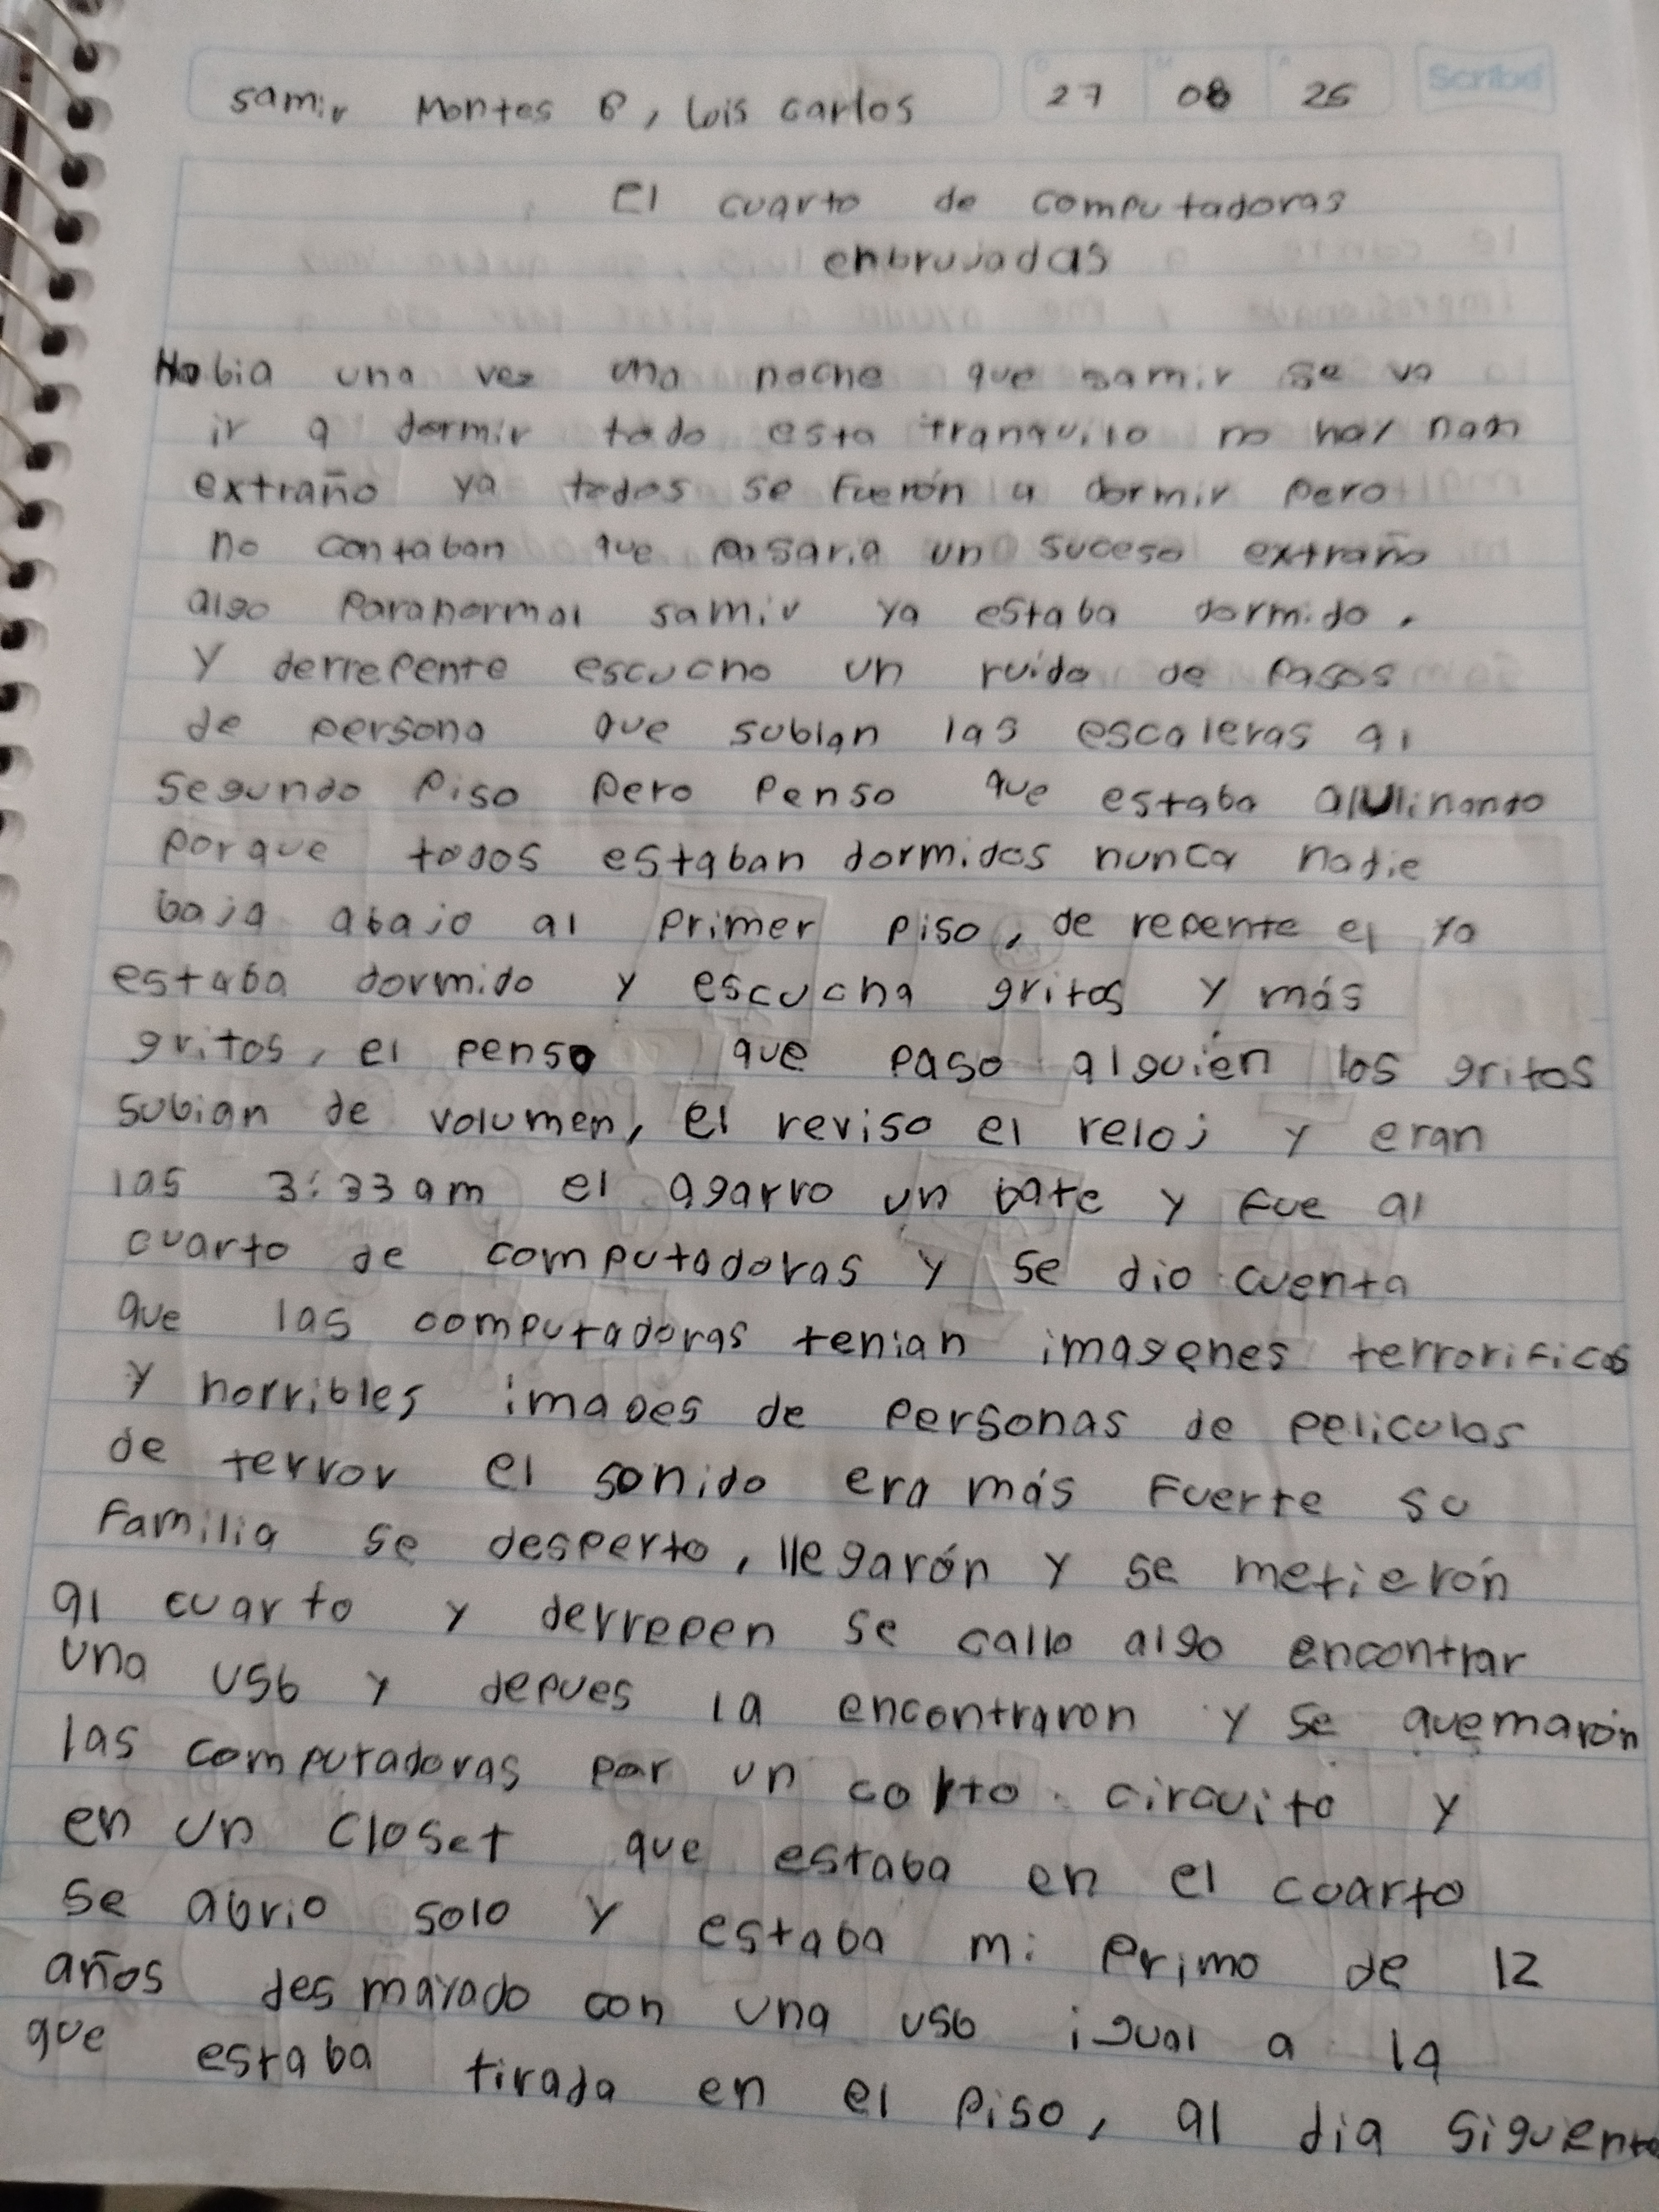 samir Montes B, Luis Carlos
27 08 25
Scribe
El cuarto de computadoras
enbrujadas
Habia una vez una noche que samir se va
ir a dormir todo esta tranquilo no hay nada
extraño ya todos se fuerón a dormir pero
no contaban que pasaria un suceso extraño
algo Paranormal samir ya estaba dormido,
y derrepente escucho un ruido de pasos
de persona que subian las escaleras al
segundo piso pero penso que estaba alulinando
porque todos estaban dormidos nunca nadie
baja abajo al primer piso, de repente el ya
estaba dormido y escucha gritos y más
gritos, el penso que paso alguien los gritos
subian de volumen, el reviso el reloj y eran
las 3:33 am el agarro un bate y fue al
cuarto de computadoras y se dio cuenta
que las computadoras tenian imagenes terrorificas
y horribles images de personas de peliculas
de terror el sonido era más fuerte su
familia se desperto, llegarón y se metierón
al cuarto y derrepen se callo algo encontrar
una usb y depues la encontraron y se quemarón
las computadoras por un corto circuito y
en un closet que estaba en el cuarto
se abrio solo y estaba mi primo de 12
años desmayado con una usb igual a la
que estaba tirada en el piso, al dia siguente